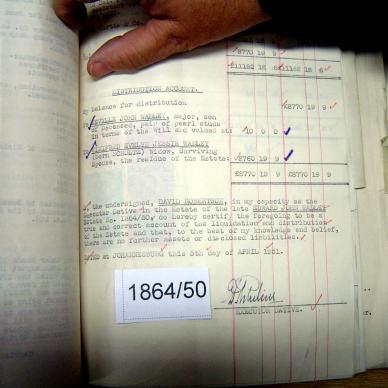 £8770 19 9
£11182 18 6 £11182 18 6
DISTRIBUTION ACCOUNT.
By balance for distribution £8770 19 9
NEVILLE JOHN WADLEY, major, son
of Deceased, pair of pearl studs
in terms of the Will and valued at: 10 0 0
WINIFRED EVELYN JESSIE WADLEY
(born SCHOLTZ) Widow, Surviving
Spouse, the residue of the Estate: £8760 19 9
£8770 19 9 £8770 19 9
I, the undersigned, DAVID ROBERTSON, in my capacity as the
Executor Dative in the Estate of the late EDWARD JOHN WADLEY
Estate No. 1864/50, do hereby certify the foregoing to be a
true and correct account of the liquidation and distribution
of the Estate and that, to the best of my knowledge and belief,
there are no further assets or disclosed liabilities.
DATED at JOHANNESBURG this 5th day of APRIL 1951.
EXECUTOR DATIVE.
1864/50